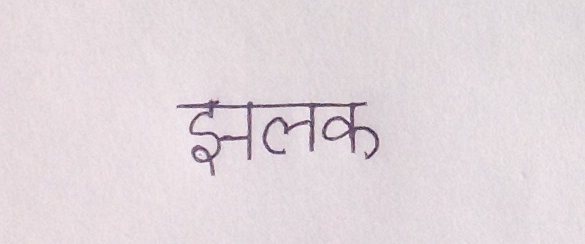 झलक